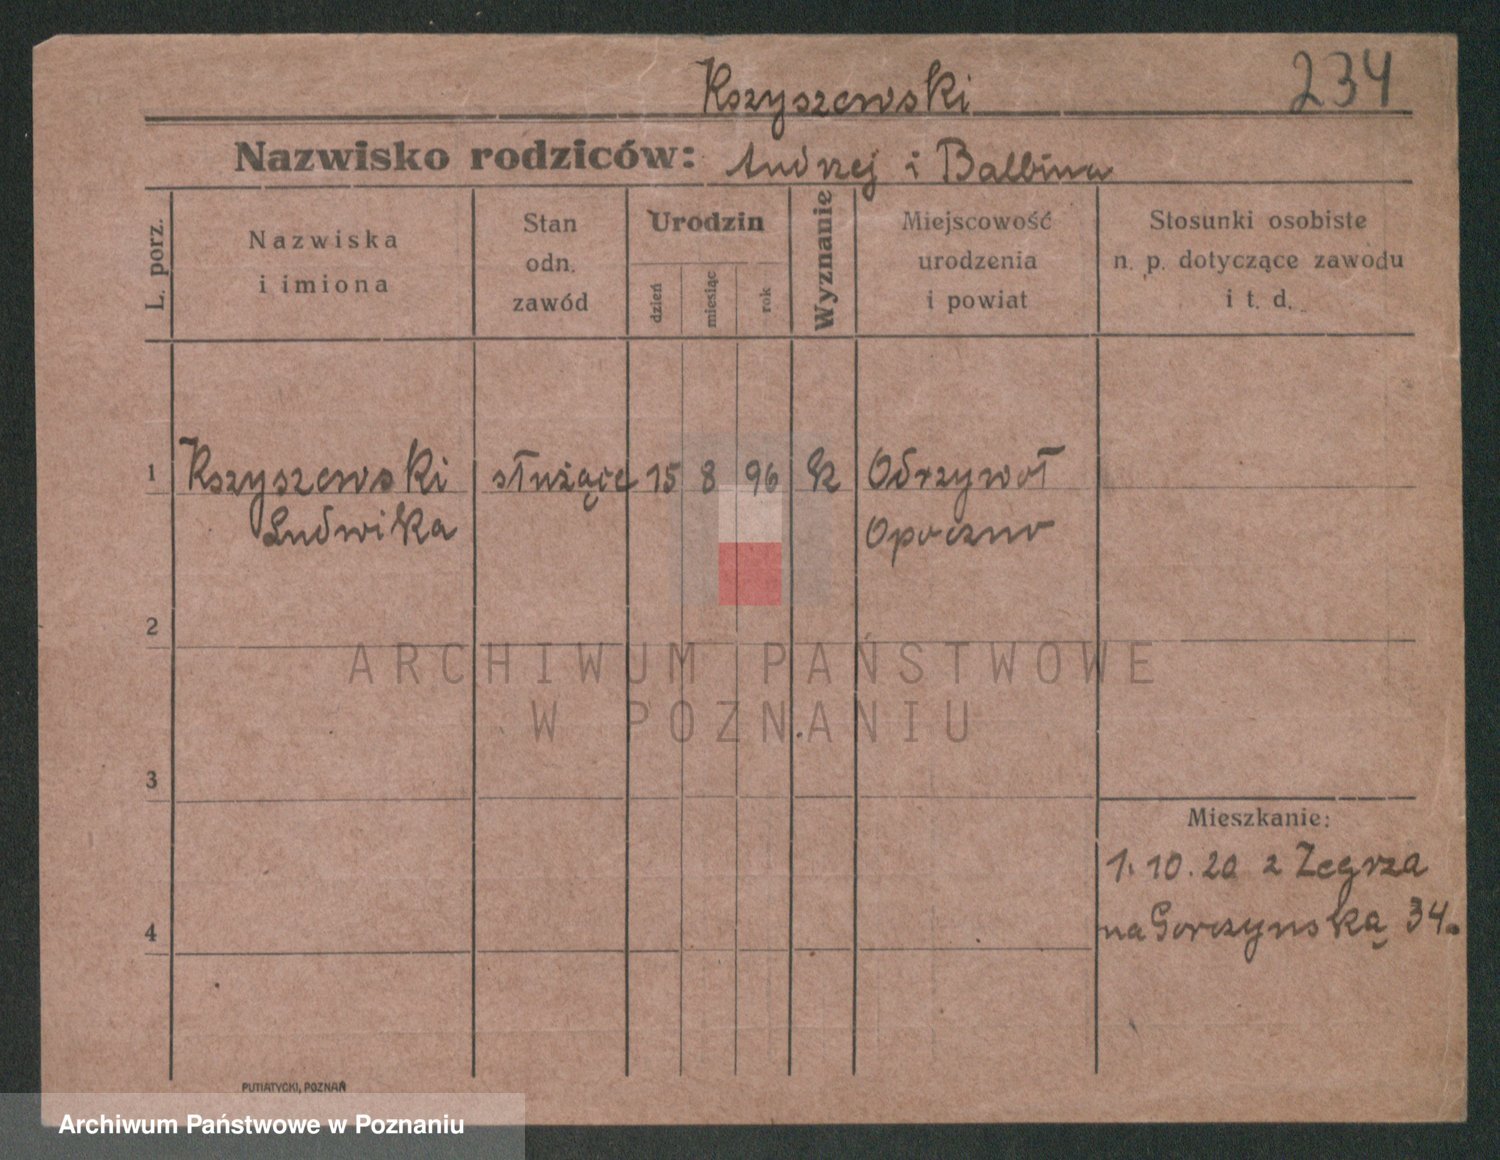 Kszyszewski 234
Nazwisko rodziców: Andrzej i Balbina
L. porz.
Nazwiska
i imiona
Stan
odn.
zawód
Urodzin
dzień
miesiąc
rok
Wyznanie
Miejscowość
urodzenia
i powiat
Stosunki osobiste
n. p. dotyczące zawodu
i t. d.
1 Kszyszewski służąca 15 8 96 k Odrzywoł
Ludwika Opoczno
2
3
Mieszkanie:
1. 10. 20 z Zegrza
4
na Gorczyńską 34.
PUTIATYCKI, POZNAŃ
ARCHIWUM PAŃSTWOWE
W POZNANIU
Archiwum Państwowe w Poznaniu